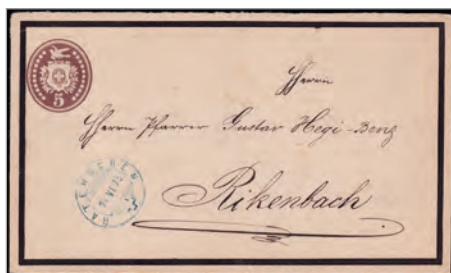 5
Herrn
Herrn Pfarrer Gustav Hegi-Benz
Rikenbach